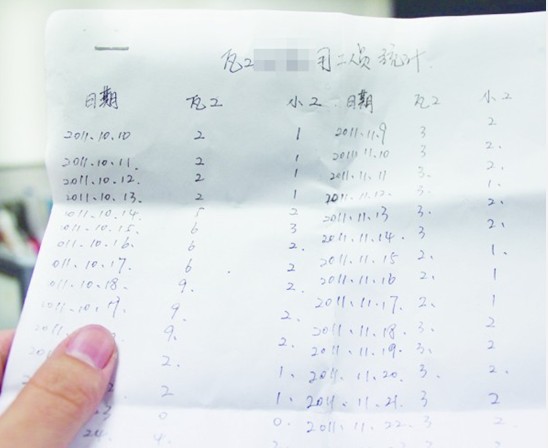 瓦工 用工员统计
日期 瓦工 小工 日期 瓦工 小工
2011.10.10 2 1 2011.11.9 3 2
2011.10.11. 2 1 2011.11.10 3 2.
2011.10.12. 2 1 2011.11.11 3. 2.
2011.10.13. 2 1 2011.11.12. 3. 1.
011.10.14. 5 2 2011.11.13 3. 2.
011.10.15. 6 3 2011.11.14. 3 2.
011.10.16. 6 2. 2011.11.15 2. 1.
011.10.17. 6 2 2011.11.16 2. 1
011.10.18. 9. 2. 2011.11.17. 2. 1
011.10.19. 9. 2. 2011.11.18. 3. 2
9. 2. 2011.11.19. 3. 2
2. 1. 2011.11.20. 3. 2
2 1. 2011.11.21. 3 2
0 0. 2011.11.22. 3 2
4.